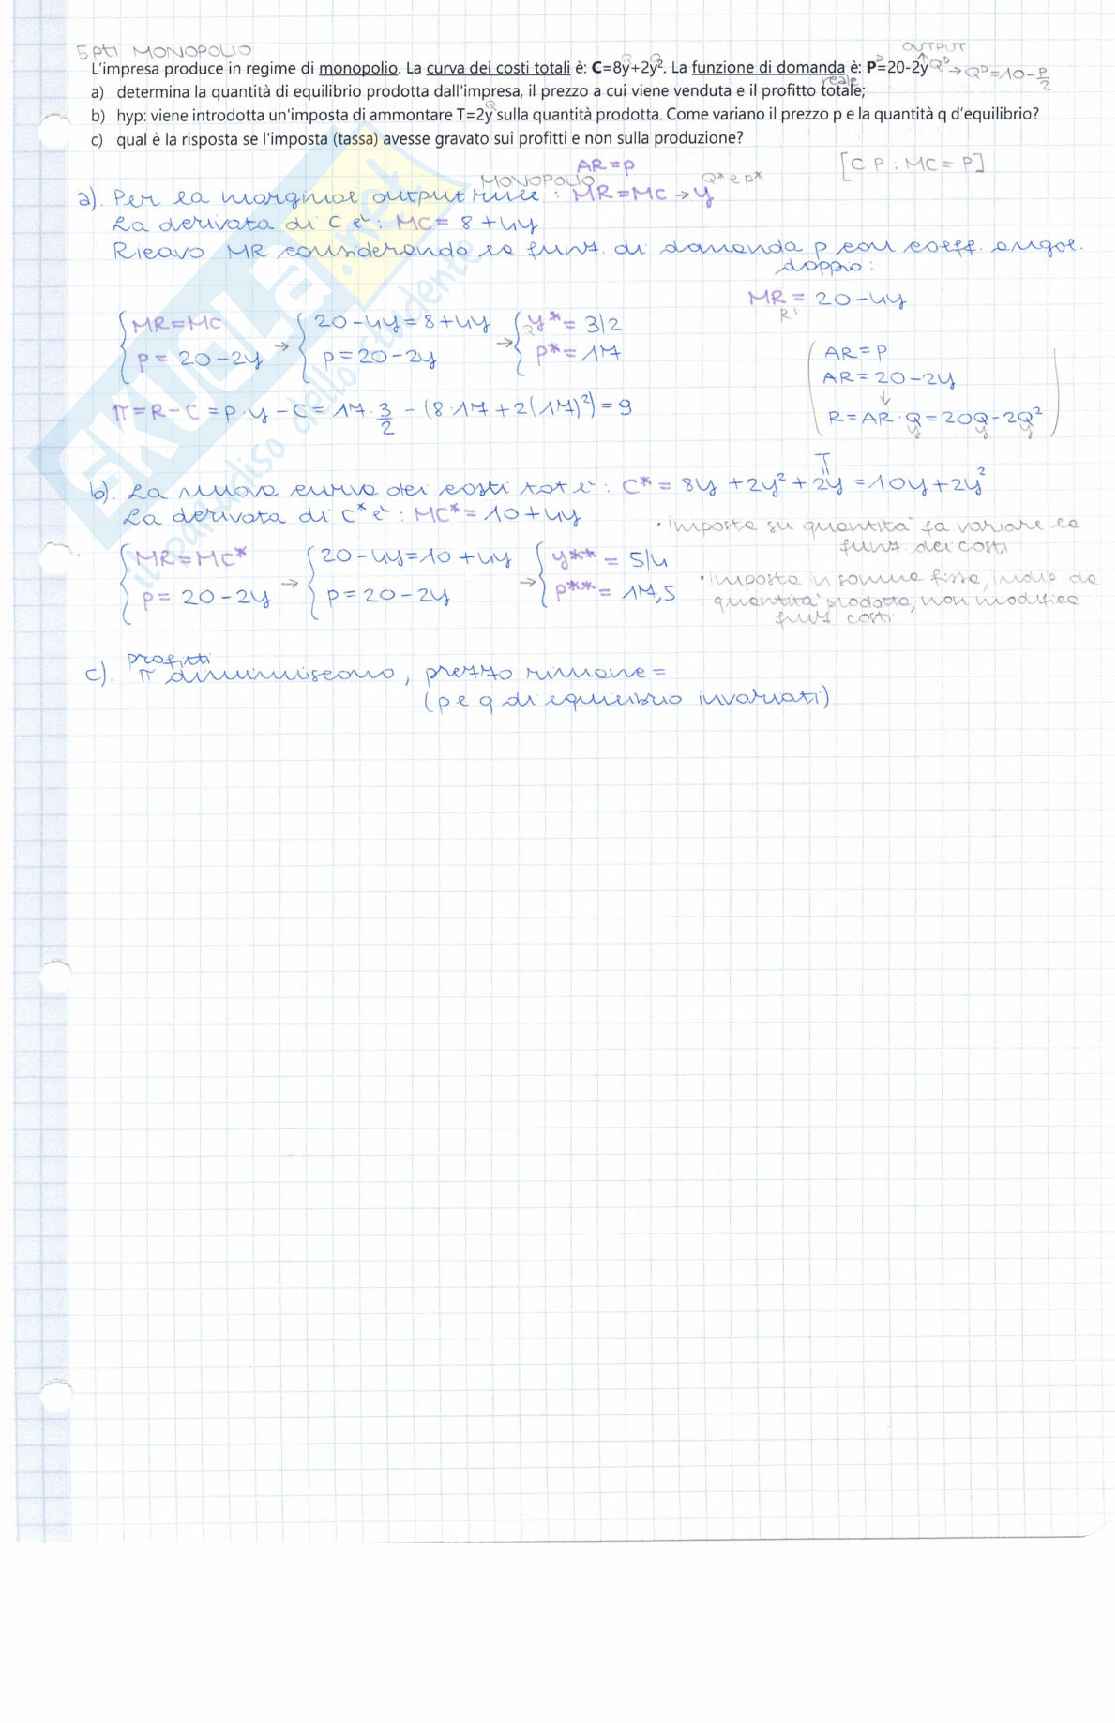 5 pti MONOPOLIO
OUTPUT
L'impresa produce in regime di monopolio. La curva dei costi totali è: C=8y+2y². La funzione di domanda è: P=20-2y Qᴰ → Qᴰ=10-p/2
reale
a) determina la quantità di equilibrio prodotta dall'impresa, il prezzo a cui viene venduta e il profitto totale;
b) hyp: viene introdotta un'imposta di ammontare T=2y sulla quantità prodotta. Come variano il prezzo p e la quantità q d'equilibrio?
c) qual è la risposta se l'imposta (tassa) avesse gravato sui profitti e non sulla produzione?
AR=p
[CP: MC=P]
MONOPOLIO
Q* e p*
a). Per la marginal output rule: MR=MC → y
La derivata di C è: MC= 8+4y
Ricavo MR considerando la funz. di domanda p con coeff. angol.
doppio:
MR = 20-4y
R'
{MR=MC → {20-4y=8+4y → {y*= 3/2
p= 20-2y p=20-2y p*=17
AR=P
AR=20-2y
↓
R=AR·Q=20Q-2Q²
y y y
π=R-C=p·y-C= 17·3/2 - (8·17+2(17)²)=9
T
b). La nuova curva dei costi tot è: C*= 8y+2y²+2y=10y+2y²
La derivata di C* è: MC*=10+4y
• imposta su quantità fa variare la
funz dei costi
{MR=MC* → {20-4y=10+4y → {y**= 5/4
p= 20-2y p=20-2y p**= 17,5
• imposta in somma fissa, indip da
quantità prodotta, non modifica
funz costi
profitti
c). π diminuiscono, prezzo rimane =
(p e q di equilibrio invariati)
SKUOLA.net
il paradiso dello studente